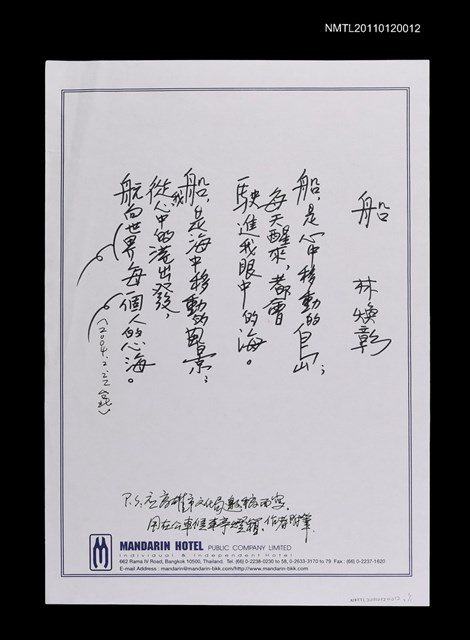 NMTL20110120012
船
林煥彰
船,是心中移動的島;
每天醒來,都會
駛進我眼中的海。
船,是海中移動的風景;
從我心中的港出發,
航向世界每一個人的心海。
P.S.应高雄市文化局邀稿而寫,
用在公車候車亭燈箱,作者附筆.
MANDARIN HOTEL PUBLIC COMPANY LIMITED
Individual & Independent Hotel
662 Rama IV Road, Bangkok 10500, Thailand. Tel. (66) 0-2238-0230 to 58, 0-2633-3170 to 79 Fax : (66) 0-2237-1620
E-mail Address : mandarin@mandarin-bkk.com/http://www.mandarin-bkk.com
NMTL20110120012